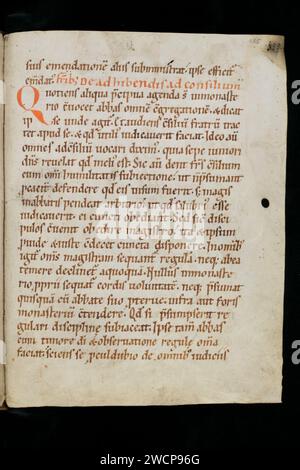 suis emendatione aliis subministrat. ipse efficit
De adhibendis ad consilium
Quotiens aliqua p̄cipua agenda s̄ in monaste
rio c̄uocet abbas omnē c̄gregationē & dicat
ip se unde agit. & audiens c̄siliū fr̄um trac
tet apud se. & qđ utili᷒ iudicauerit faciat. Ideo au
omnes ad c̄siliū uocari dixim᷒. quia sepe iuniori
dn̄s reuelat qđ meli᷒ est. Sic au dent fr̄s c̄siliū
cum om̄i humilitatis subiectione. ut n̄ p̄sumant
defendere qđ eis uisum fuerit. s; magis
in abbatis pendeat arbitrio. ut qđ salubri᷒ ēē
iudicauerit ei cuncti obediant. Sed sic disci
pulos c̄uenit obedire magistro. ita & ipsum
ꝓuide & iuste c̄decet cuncta disponere. In omnib;
igit om̄s magistram sequant regulā. neq; ab ea
temere declinet a quoquā. Null᷒ in monaste
rio ꝓprii sequat cordis uoluntatē. neq; p̄sumat
quisquā cū abbate suo ꝓterue. infra aut foris
monasteriū c̄tendere. Qđ si p̄sumpserit re
gulari discipline subiaceat. Ipse tam̄ abbas
cum timore dī & obseruatione regule om̄a
faciat. sciens se ꝓculdubio de omnib; iudiciis
alamy
Image ID: 2WCP96G
www.alamy.com